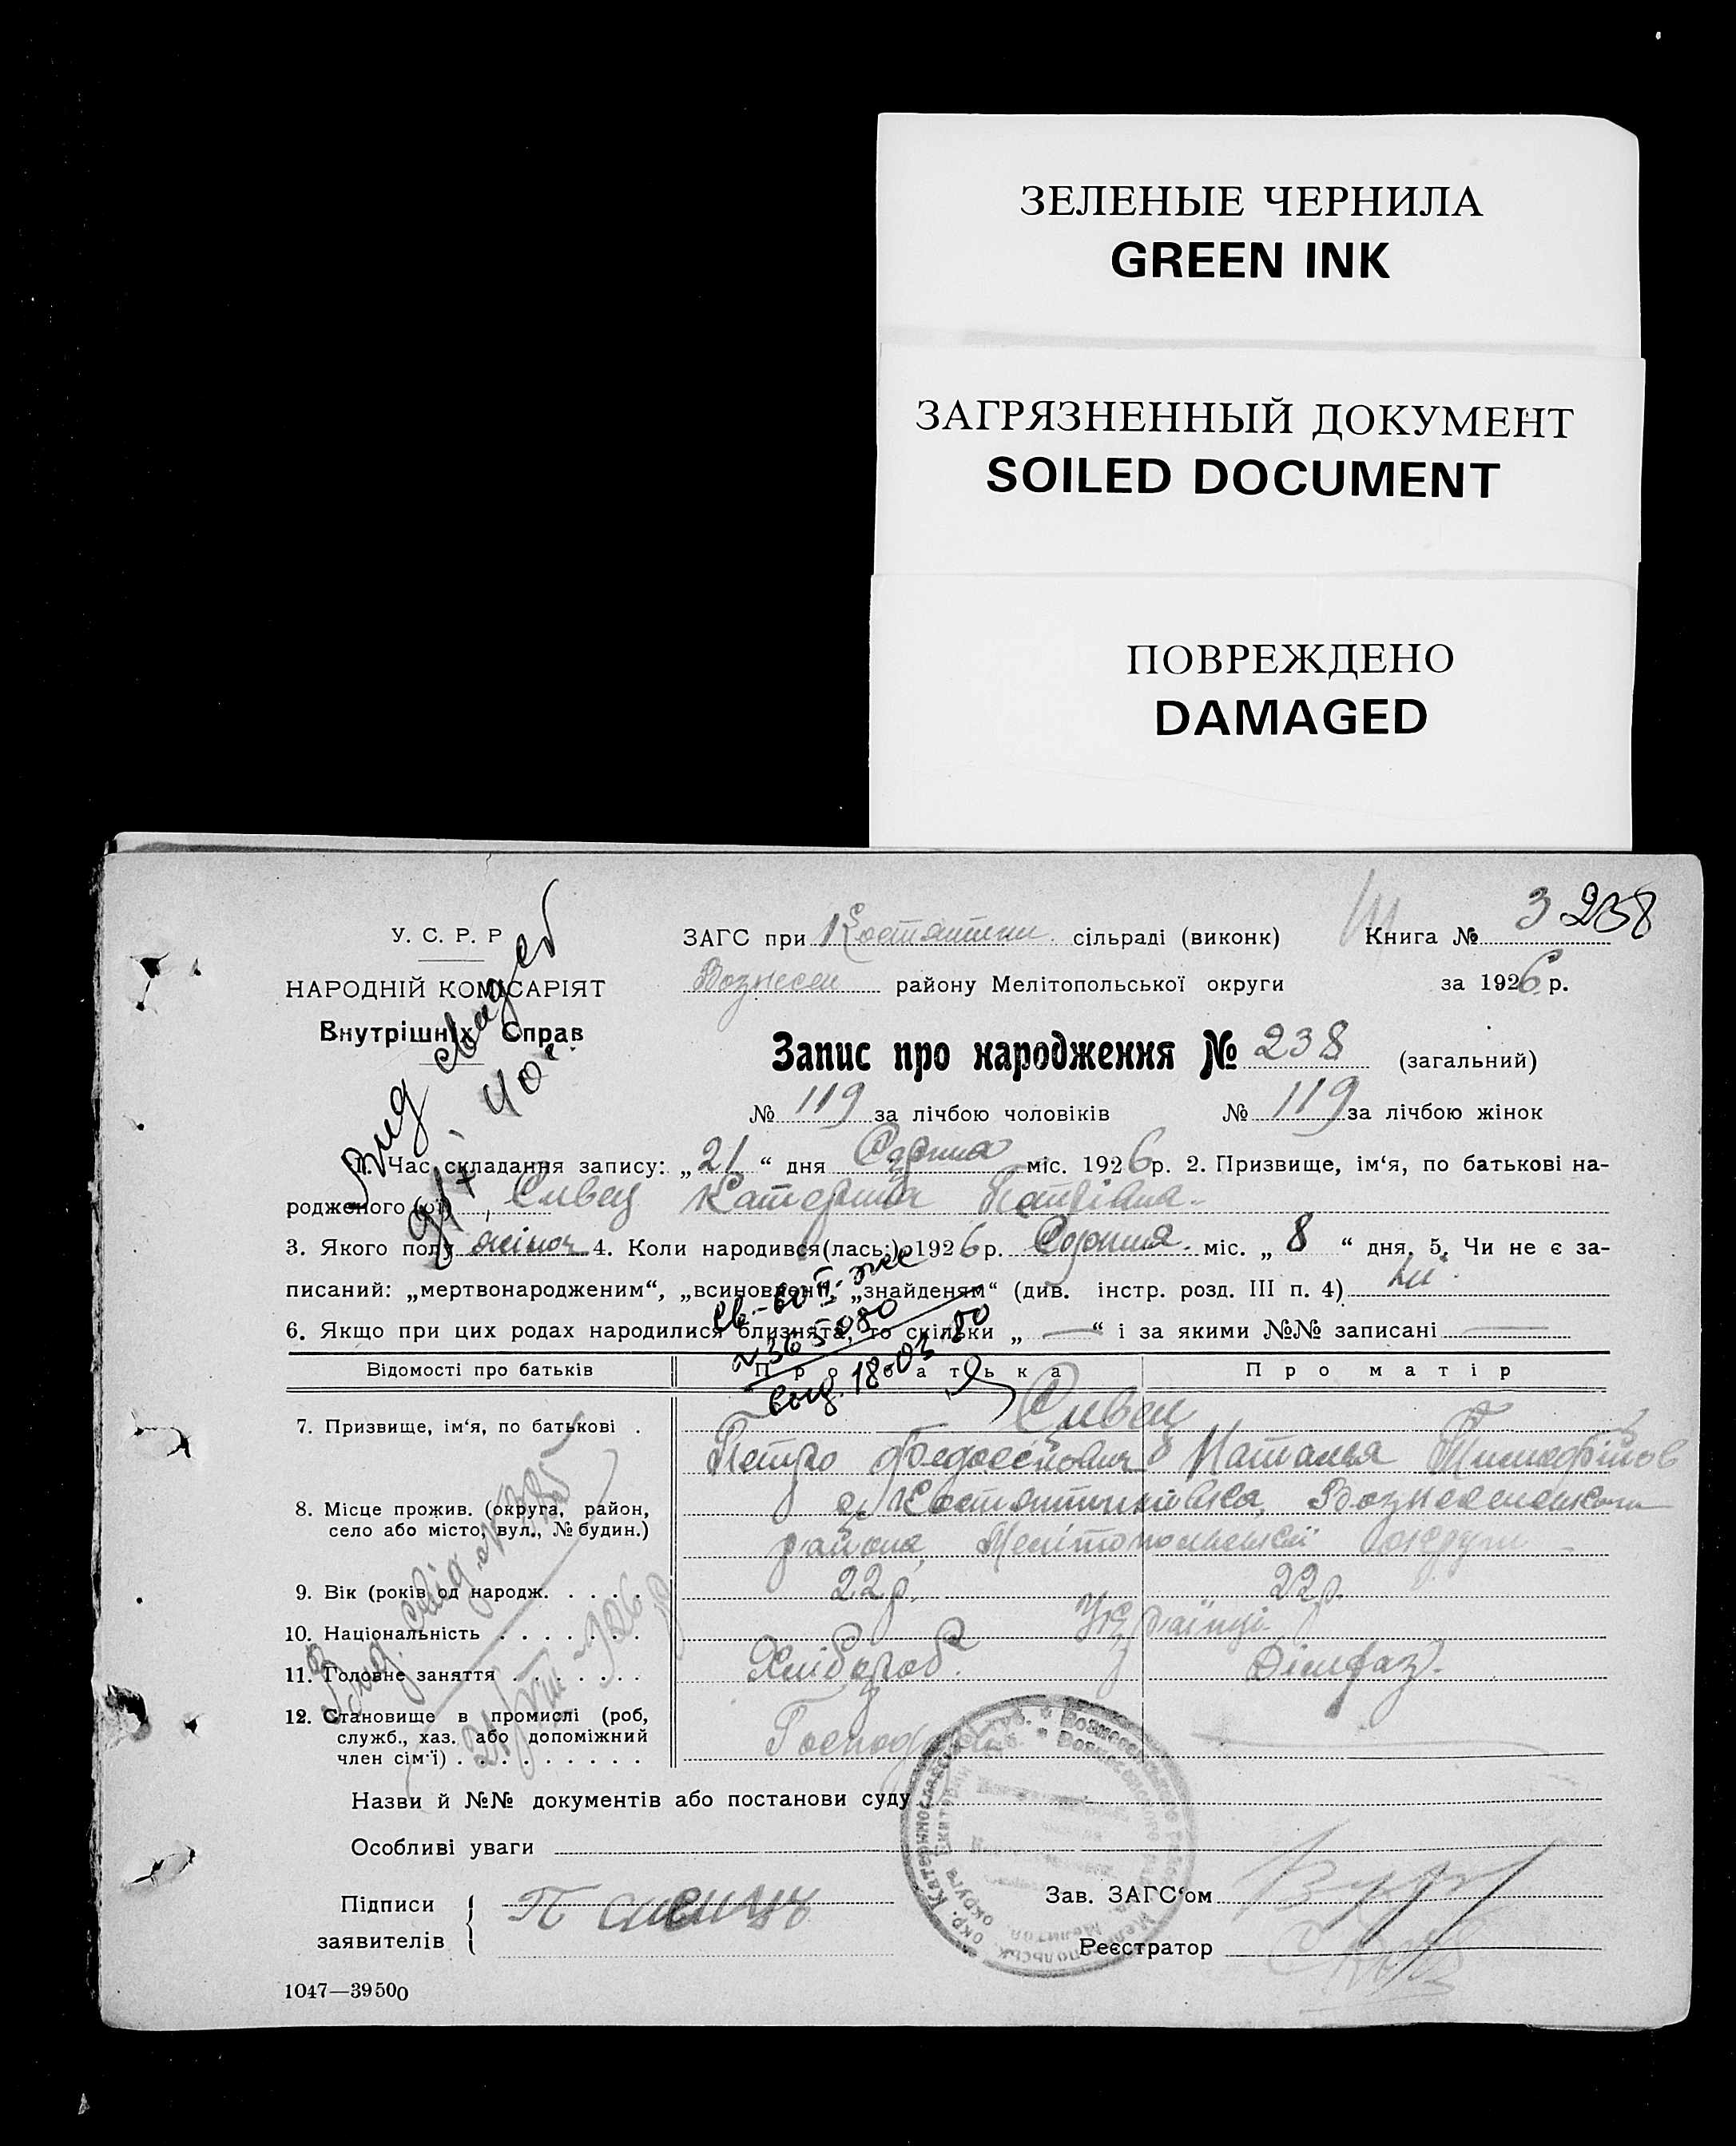 ЗЕЛЕНЫЕ ЧЕРНИЛА
GREEN INK
ЗАГРЯЗНЕННЫЙ ДОКУМЕНТ
SOILED DOCUMENT
ПОВРЕЖДЕНО
DAMAGED
3 238
У. С. Р. Р
НАРОДНІЙ КОМІСАРІЯТ
Внутрішніх Справ
ЗАГС при Костянтин. сільраді (виконк) Книга №
Вознесен району Мелітопольської округи за 1926 р.
Запис про народження № 238 (загальний)
№ 119 за лічбою чоловіків № 119 за лічбою жінок
1. Час складання запису: „21“ дня Серпня міс. 1926 р. 2. Призвище, ім‘я, по батькові на-
родженого (ої) Сивец Катерина Петрівна
3. Якого полу жіноч 4. Коли народився(лась:) 1926 р. Серпня міс. „ 8 “ дня. 5. Чи не є за-
писаний: „мертвонародженим“, „всиновлений“, „знайденям“ (див. інстр. розд. III п. 4) ні.
6. Якщо при цих родах народилися близнята, то скільки „ — “ і за якими №№ записані —
выд. 18-03-80
Відомості про батьків Про батька Про матір
7. Призвище, ім‘я, по батькові . Сивец
Петро Наталья
8. Місце прожив. (округа, район,
село або місто, вул., № будин.)
с. Костянтинівка, Вознесенського
района, Мелітопольської округи
9. Вік (років од народж. . . . . 22 р. 22 р.
10. Національність . . . . . . . Українці
11. Головне заняття . . . . . . . Хлібороб.
12. Становище в промислі (роб,
служб., хаз. або допоміжний
член сім‘ї) . . . . . . . . . Господ
Назви й №№ документів або постанови суду
Особливі уваги
Підписи
заявителів
Зав. ЗАГС‘ом
Реєстратор
1047—39500